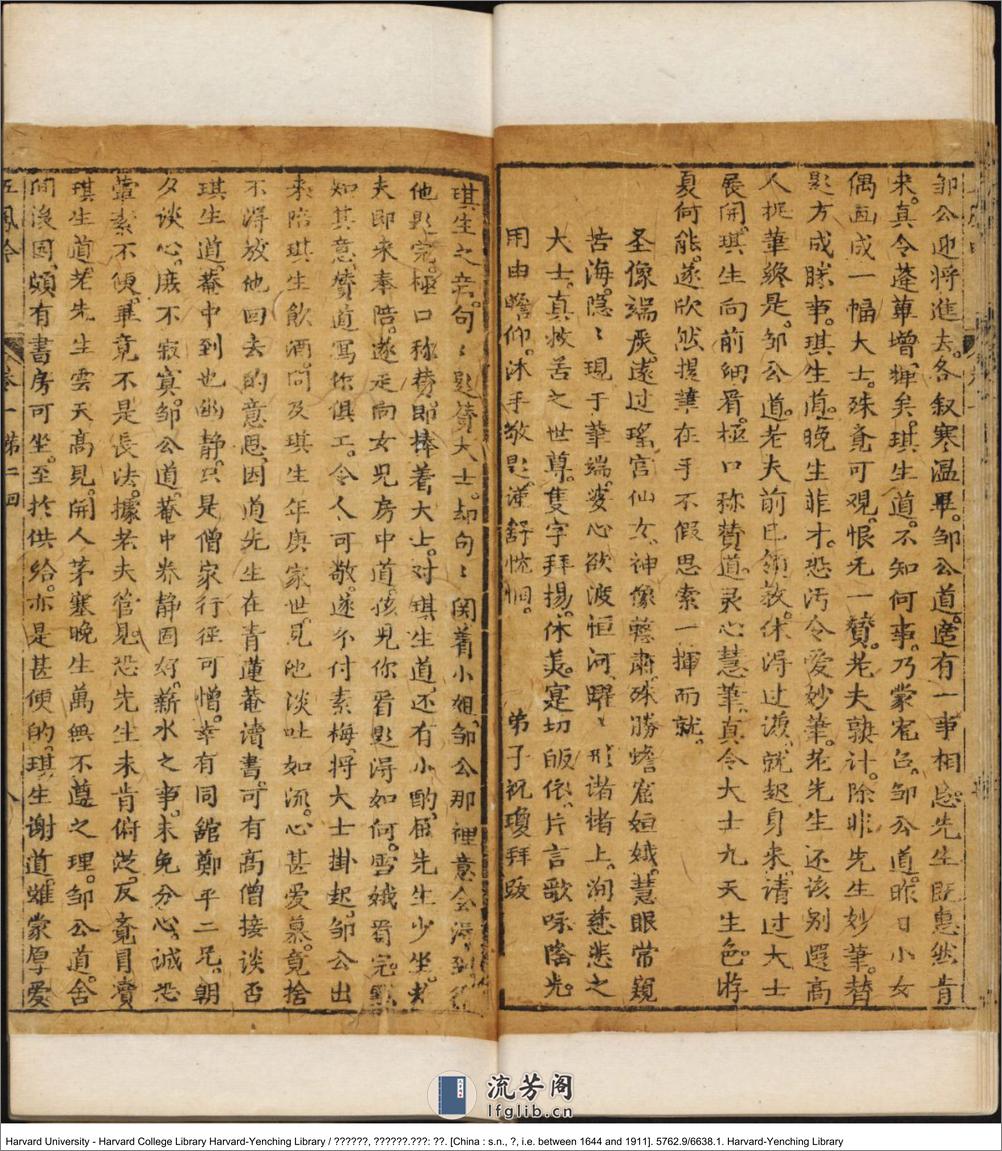 邹公迎将進去。各叙寒温畢。邹公道。適有一事相恳。先生既惠然肯
来。真令蓬蓽增輝矣。琪生道。不知何事。乃蒙寵召。邹公道。昨日小女
偶画成一幅大士。殊竟可观。恨无一賛。老夫孰计。除非先生妙筆。替
题方成勝事。琪生道。晚生菲才。恐污令爱妙筆。老先生还该别選高
人捉筆終是。邹公道。老夫前已領教。休淂过谦。就起身来。请过大士
展開。琪生向前細看。極口称賛道。灵心慧筆。真令大士九天生色。将
夏何能。遂欣然提筆在手。不假思索。一揮而就。
圣像端庄。遠过瑤宫仙女。神像整肃。殊勝蟾窟姮娥。慧眼常窺
苦海。隐〻現于筆端。婆心欲渡恒河。躍〻形诸楮上。洵慈悲之
大士。真救苦之世尊。隻字拜揚。休美。寔切皈依。片言歌咏。隆光
用由瞻仰。沐手敬题。謹舒忱悃。　　弟子祝瓊拜跋
琪生之意。句〻题賛大士。却句〻関着小姐。邹公那裡意会淂到。待
他题完。極口称賛。即捧着大士。对琪生道。还有小酌。屈先生少坐。老
夫即来奉陪。遂走向女児房中道。孩児你看题淂如何。雪娥看完。默
知其意。賛道。寫作俱工。令人可敬。遂分付素梅。将大士掛起。邹公出
来陪琪生飲酒。问及琪生年庚家世。見他淡吐如流。心甚爱慕。竟捨
不淂放他回去的意思。因道。先生在青蓮菴讀書。可有高僧接谈否
琪生道。菴中到也幽静。只是僧家行徑可憎。幸有同舘鄭平二兄。朝
夕谈心。庻不寂寞。邹公道。菴中养静固好。薪水之事。未免分心。诚恐
葷素不便。畢竟不是長法。據老夫管見。恐先生未肯俯從。反竟冒凟
琪生道。老先生雲天高見。開人茅塞。晚生萬無不遵之理。邹公道。舍
间後园。頗有書房可坐。至於供給。亦是甚便的。琪生谢道。雖蒙厚爱
五鳳吟　卷一　第二回　八
流芳阁
lfglib.cn
Harvard University - Harvard College Library Harvard-Yenching Library / ??????, ??????.???: ??. [China : s.n., ?, i.e. between 1644 and 1911]. 5762.9/6638.1. Harvard-Yenching Library